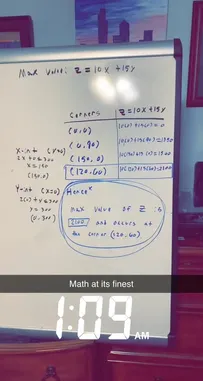 Max value: Z = 10x + 15y
Corners Z = 10x + 15y
(0,0) 10(0) + 15(0) = 0
(0,90) 10(0) + 15(90) = 1350
(150,0) 10(150) + 15(0) = 1500
(120,60) 10(120) + 15(60) = 2100
X-int (y=0)
2x + 0 ≤ 300
x = 150
(150,0)
Y-int (x=0)
2(0) + y ≤ 300
y = 300
(0,300)
Hence
Max value of Z is
2100 and occurs at
the corner (120,60)
Math at its finest
1:09 AM